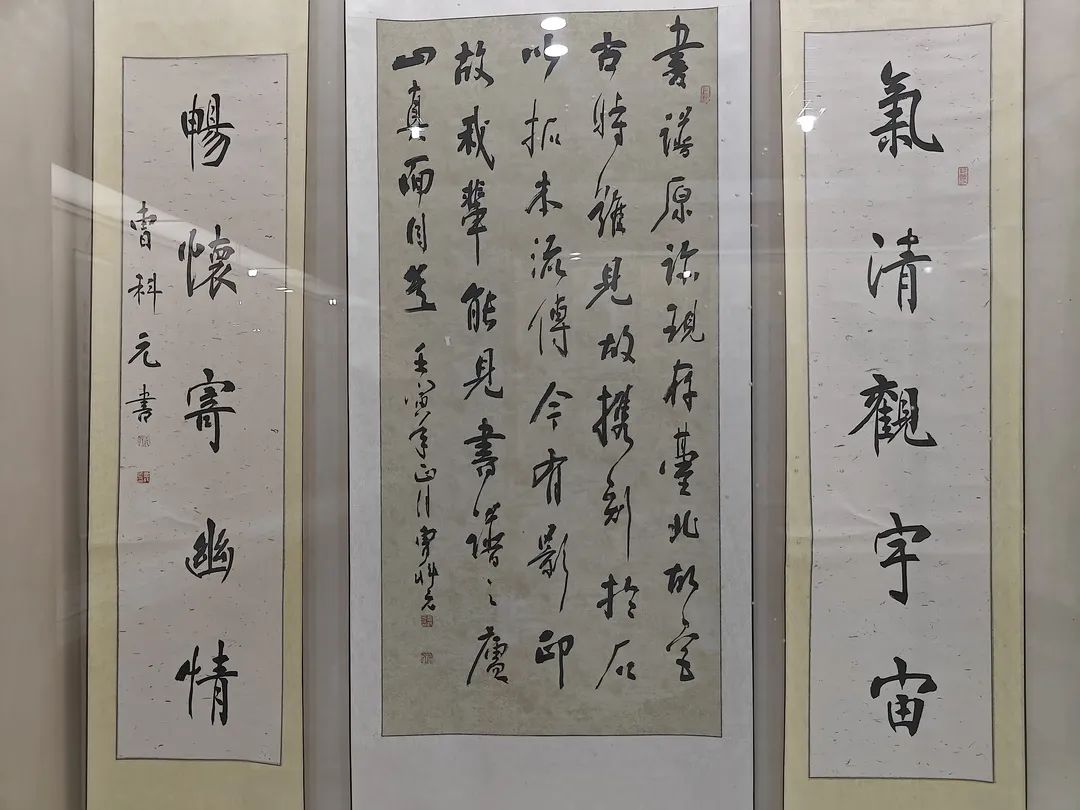 氣清觀宇宙
書譜原跡現存臺北故宮
古時難見故鐫刻於石
以拓本流傳今有影印
故我輩能見書譜之廬
山真面目矣 壬寅年正月曹科元
暢懷寄幽情
曹科元書